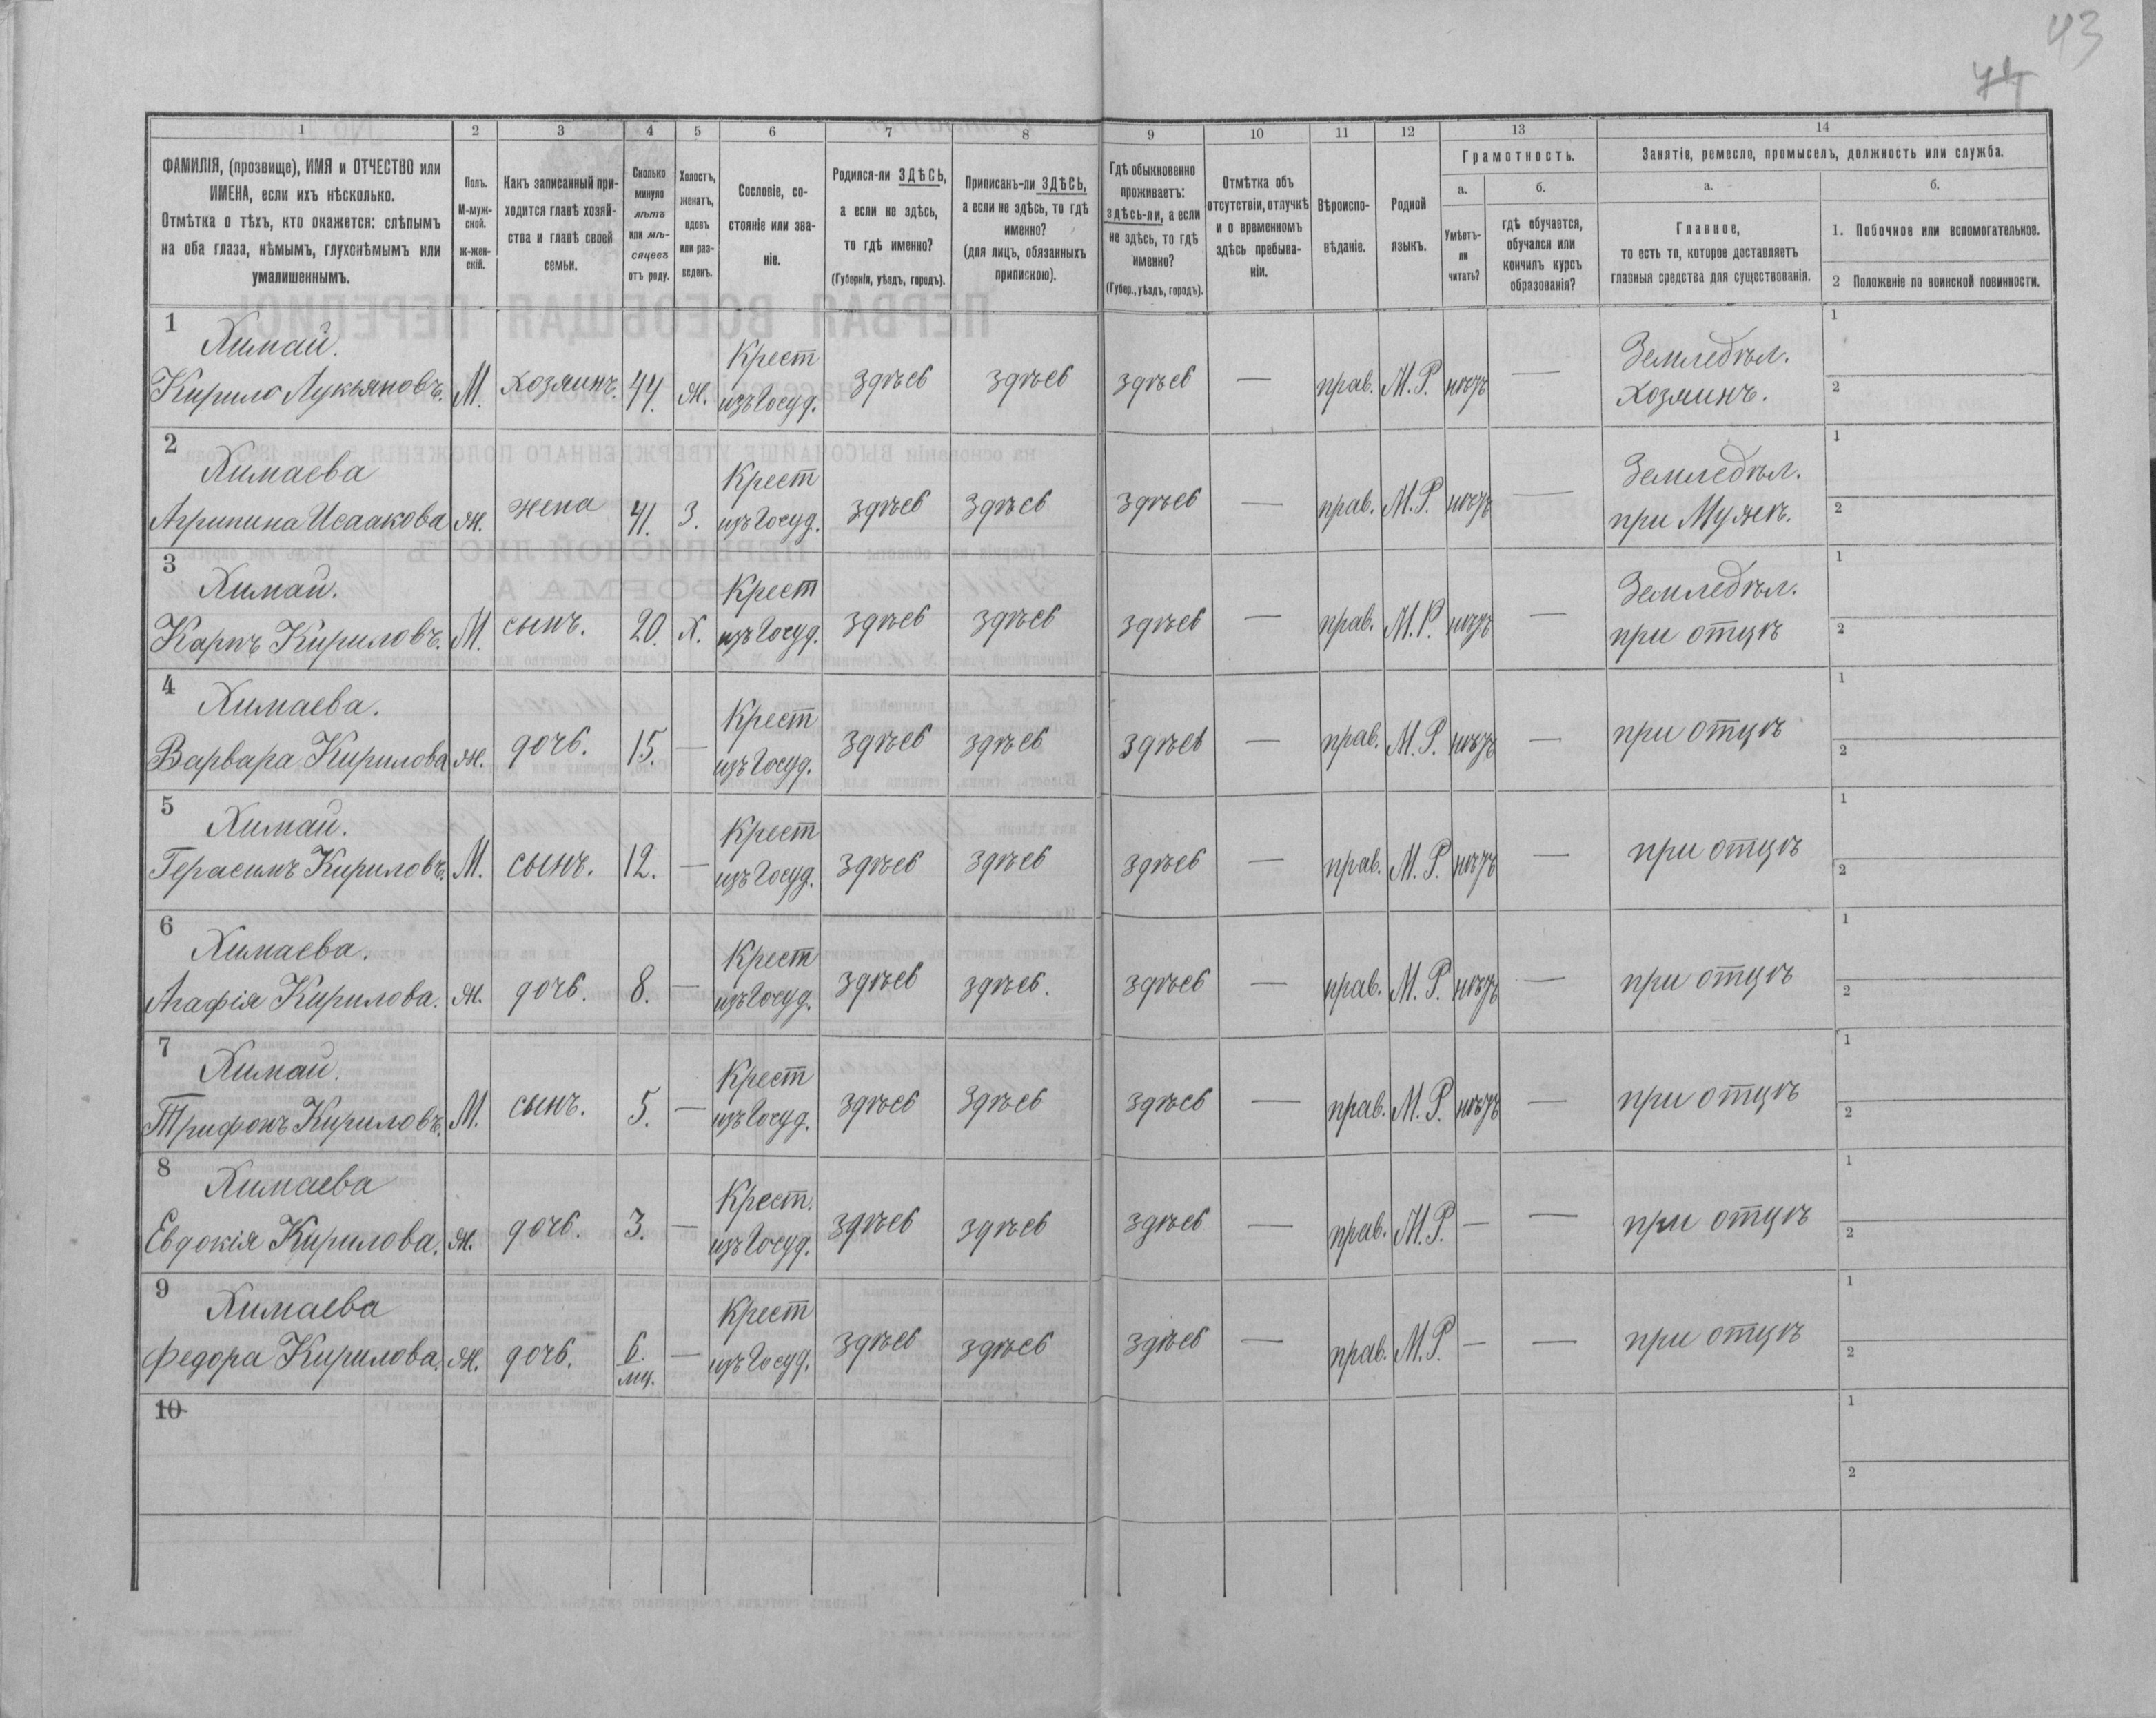 43
44
1 2 3 4 5 6 7 8 9 10 11 12 13 14
ФАМИЛІЯ, (прозвище), ИМЯ и ОТЧЕСТВО или
ИМЕНА, если ихъ нѣсколько.
Отмѣтка о тѣхъ, кто окажется: слѣпымъ
на оба глаза, нѣмымъ, глухонѣмымъ или
умалишеннымъ.
Полъ.
М-муж-
ской.
ж-жен-
скій.
Какъ записанный при-
ходится главѣ хозяй-
ства и главѣ своей
семьи.
Сколько
минуло
лѣтъ
или мѣ-
сяцевъ
отъ роду.
Холостъ,
женатъ,
вдовъ
или раз-
веденъ.
Сословіе, со-
стояніе или зва-
ніе.
Родился-ли ЗДѢСЬ,
а если не здѣсь,
то гдѣ именно?
(Губернія, уѣздъ, городъ).
Приписанъ-ли ЗДѢСЬ,
а если не здѣсь, то гдѣ
именно?
(для лицъ, обязанныхъ
припискою).
Гдѣ обыкновенно
проживаетъ:
здѣсь-ли, а если
не здѣсь, то гдѣ
именно?
(Губер., уѣздъ, городъ).
Отмѣтка объ
отсутствіи, отлучкѣ
и о временномъ
здѣсь пребыва-
ніи.
Вѣроиспо-
вѣданіе.
Родной
языкъ.
Грамотность.
а.
Умѣетъ-
ли
читать?
б.
гдѣ обучается,
обучался или
кончилъ курсъ
образованія?
Занятіе, ремесло, промыселъ, должность или служба.
а.
Главное,
то есть то, которое доставляетъ
главныя средства для существованія.
б.
1. Побочное или вспомогательное.
2 Положеніе по воинской повинности.
1 Химай. Крест Земледѣл. 1
Кирило Лукьяновъ. М. хозяинъ. 44. ж. изъ Госуд. здѣсь здѣсь здѣсь — прав. М. Р. нѣтъ — Хозяинъ. 2
2 Химаева Крест Земледѣл. 1
Агрипина Исаакова ж. жена 41. З. изъ Госуд. здѣсь здѣсь здѣсь — прав. М. Р. нѣтъ — при Мужѣ. 2
3 Химай. Крест Земледѣл. 1
Карпъ Кириловъ. М. сынъ. 20. Х. изъ Госуд. здѣсь здѣсь здѣсь — прав. М. Р. нѣтъ — при отцѣ 2
4 Химаева. Крест 1
Варвара Кирилова ж. дочь. 15. — изъ Госуд. здѣсь здѣсь здѣсь — прав. М. Р. нѣтъ — при отцѣ 2
5 Химай. Крест 1
Герасимъ Кириловъ. М. сынъ. 12. — изъ Госуд. здѣсь здѣсь здѣсь — прав. М. Р. нѣтъ — при отцѣ 2
6 Химаева. Крест 1
Агафія Кирилова. ж. дочь. 8. — изъ Госуд. здѣсь здѣсь. здѣсь — прав. М. Р. нѣтъ — при отцѣ 2
7 Химай. Крест 1
Трифонъ Кириловъ. М. сынъ. 5. — изъ Госуд. здѣсь здѣсь здѣсь — прав. М. Р. нѣтъ — при отцѣ 2
8 Химаева Крест. 1
Евдокія Кирилова. ж. дочь. 3. — изъ Госуд. здѣсь здѣсь здѣсь — прав. М. Р. — — при отцѣ 2
9 Химаева Крест 1
Федора Кирилова. ж. дочь. 6. мц. — изъ Госуд. здѣсь здѣсь здѣсь — прав. М. Р. — — при отцѣ 2
10 1
2